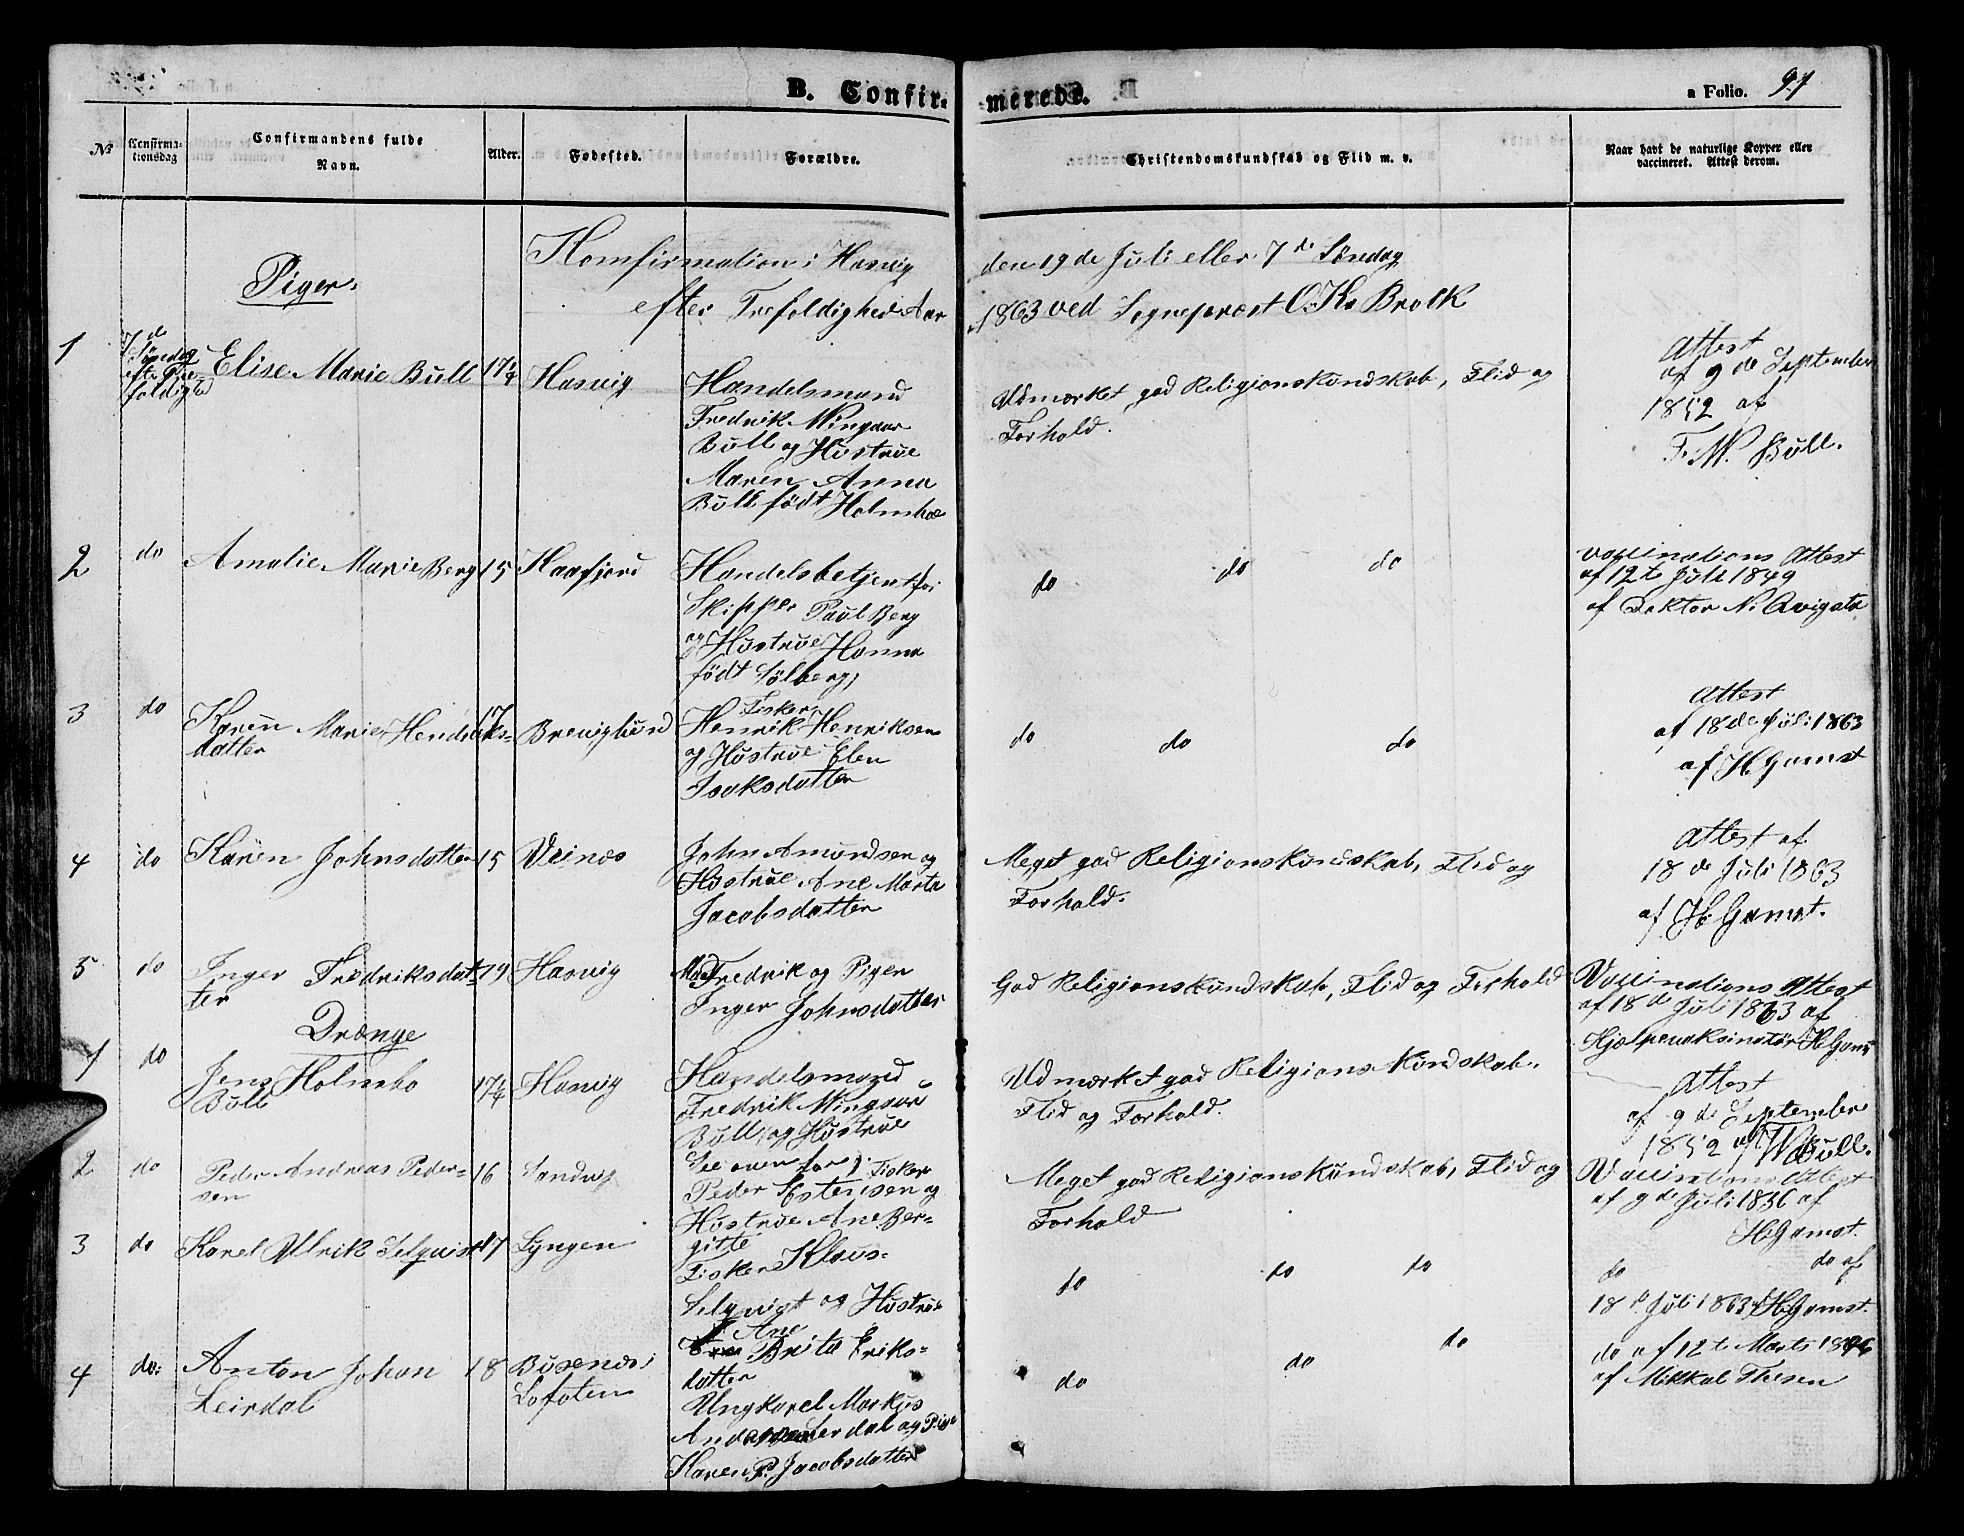 B. Confirmerede.
a Folio. 97
No
Confirmationsdag
Confirmandens fulde Navn.
Alder.
Fødested.
Forældre.
Christendomskundskab og Flid m. v.
Naar havt de naturlige Kopper eller vaccineret. Attest derom.
Komfirmation i Hasvig den 19de Juli eller 7de Søndag
efter Trefoldighed Aar 1863 ved Sogneprest
Piger.
1
7de Søndag efter Trefoldigted
Elise Marie Bull
17¼
Hasvig
Handelsmand
Fredrik Wingaar
Bull og Hustrue
Maren Anna
Bull født Holmboe
Udmærket god Religionskundskab, Flid og
Forhold.
Attest
af 9de September
1852 af
F. W. Bull.
2
do
Amalie Marie Berg
15
Haafjord
Handelsbetjent for
Skipper Paul Berg
og Hustrue Hanna
født Sølberg,
do do do
Vaccinations Attest
af 12te Juli 1849
af Doktor N. Qvigsta
3
do
Karen Marie Hendriks-
datter
17
Brevighund
Fisker
Henrik Henriksen
og Hustrue Elen
Isaksdatter
do do do
Attest
af 18de Juli 1863
af H Gamst
4
do
Karen Johnsdatter
15
Veinæs
John Amundsen og
Hustrue Ane Marta
Jacobsdatter
Meget god Religionskundskab, Flid og
Forhold.
Attest af
18de Juli 1863
af H. Gamst.
5
do
Inger Fredriksdat-
ter
19
Hasvig
Fredrik og Pigen
Inger Johnsdatter
God Religionskundskab, Flid og Forhold
Vaccinations Attest
af 18de Juli 1863 af
Hjelpevaksinatør H Gamst
Drænge
1
do
Jens Holmbo
Bull
17¼
Hasvig
Handelsmand
Fredrik Wingaar
Bull og Hustrue
See ovenfor;
Udmærket god Religions Kundskab.
Flid og Forhold.
Attest
af 9de September
1852 af W Bull.
2
do
Peder Andreas Peder-
sen
16
Sandvig
Fisker
Peder Estensen og
Hustrue Ane Ber-
gitte
Meget god Religionskundskab, Flid og
Forhold
Vaccinations Attest
af 9de Juli 1836 af
H Gamst.
3
do
Karel Ulrik Selqvist
17
Lyngen
Fisker Klaus
Selqvist og Hustrue
Ane
Brita Eriks-
datter
do do do
do do af
18de Juli 1863 af H Gamst.
4
do:
Anton Johan
Leirdal
18
Busenæs i
Lofoten
Ungkarel Markus
Andersen Lerdal og Pige
Karen P. Jacobsdatter
do do do
do af 12te Marts
af Mikkal Thesen